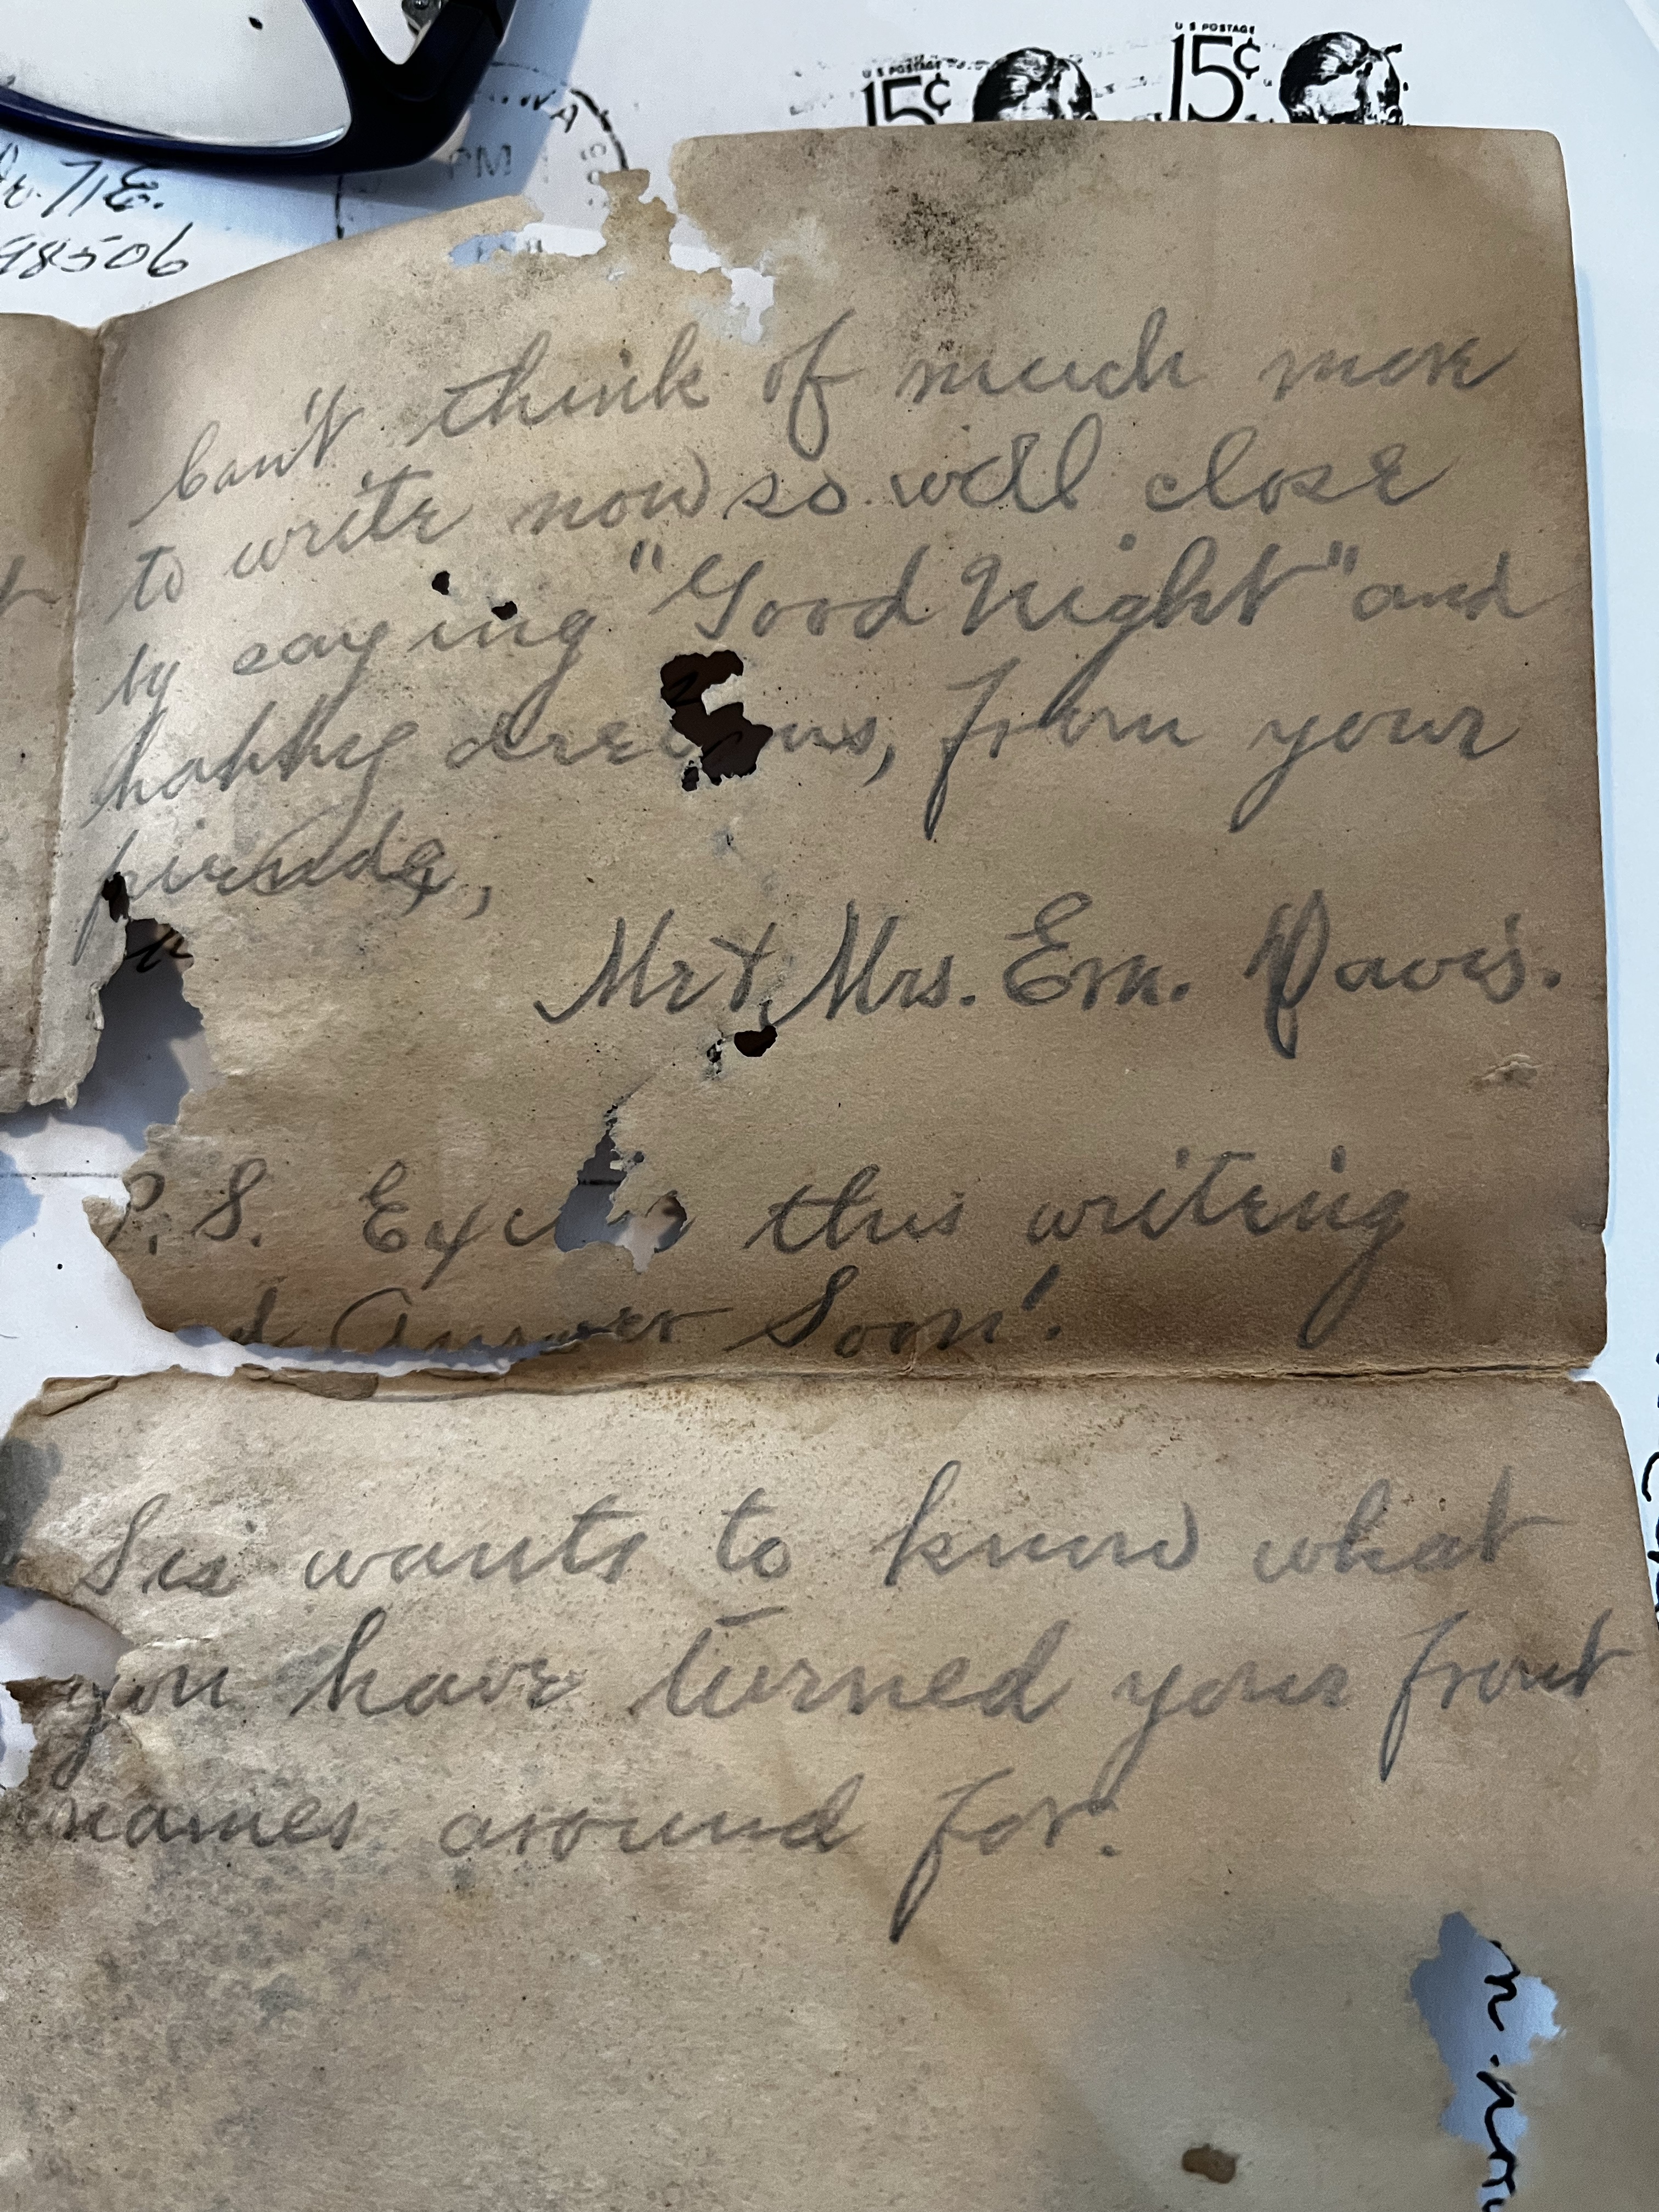 U S POSTAGE
15¢
U S POSTAGE
15¢
PM
98506
Can't think of much more
to write now so will close
by saying "Good Night" and
happy dreams, from your
friends,
Mr & Mrs. Em. Davis.
P.S. Excuse this writing
d Answer Soon!
Sis wants to know what
you have turned your front
names around for.